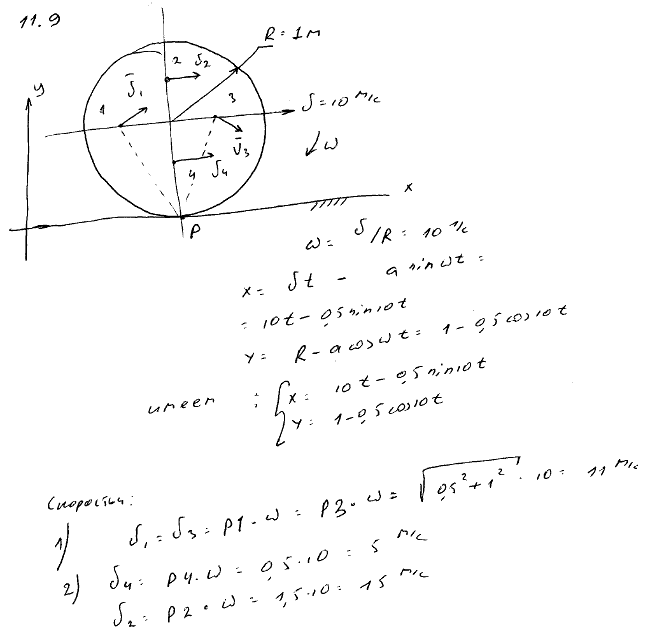 11.9
R = 1 м
y
2 υ₂
ῡ₁
1
3
υ = 10 м/с
ῡ₃
ω
4 υ₄
x
P
ω = υ/R = 10 1/c
x = υt - a sin ωt =
= 10t - 0,5 sin 10t
y = R - a cos ωt = 1 - 0,5 cos 10t
имеем : { x = 10t - 0,5 sin 10t
y = 1 - 0,5 cos 10t
Скорости:
1) υ₁ = υ₃ = P1 · ω = P3 · ω = √(0,5² + 1²) · 10 = 11 м/с
2) υ₄ = P4 · ω = 0,5 · 10 = 5 м/с
υ₂ = P2 · ω = 1,5 · 10 = 15 м/с